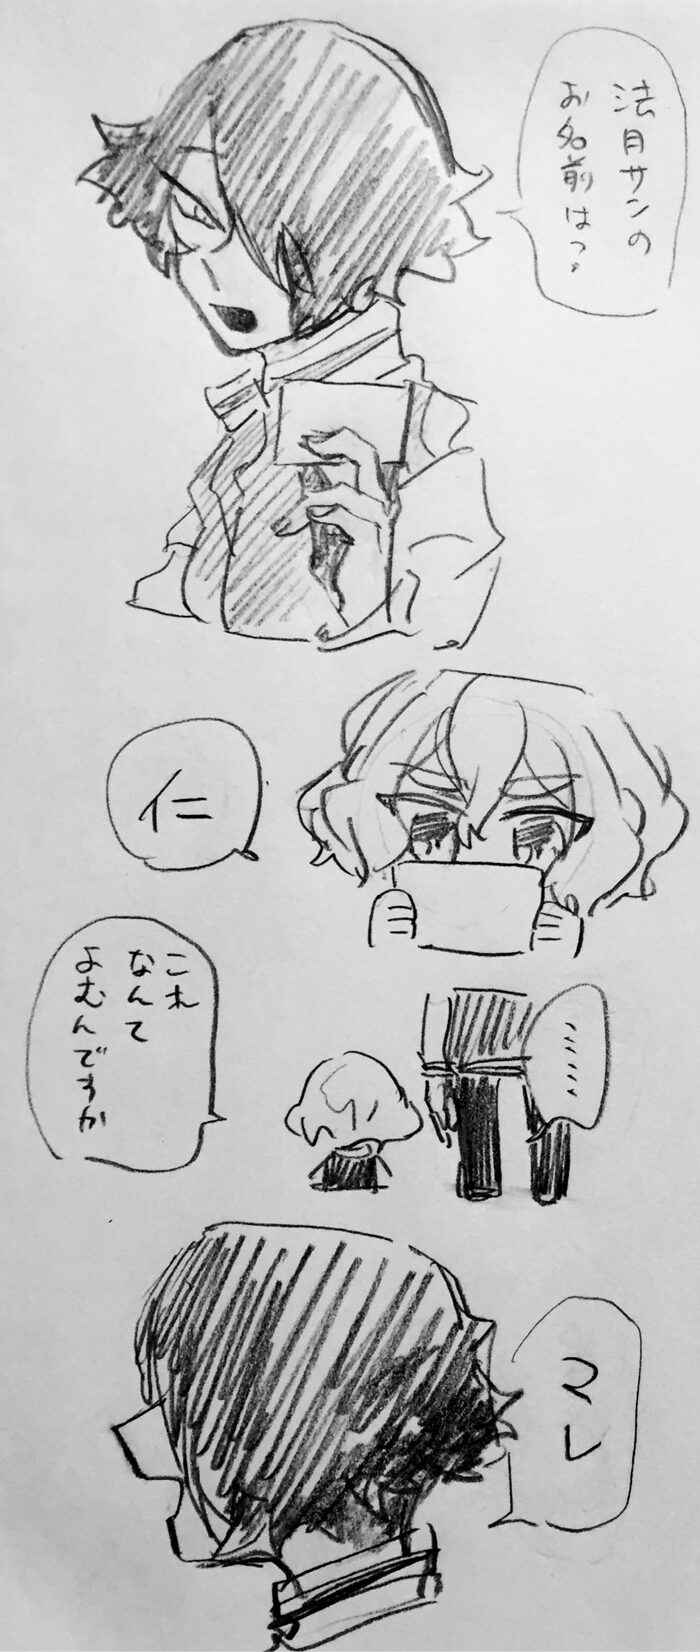 法月サンの
お名前は?
仁
これ
なんて
よむんですか
……
マレ